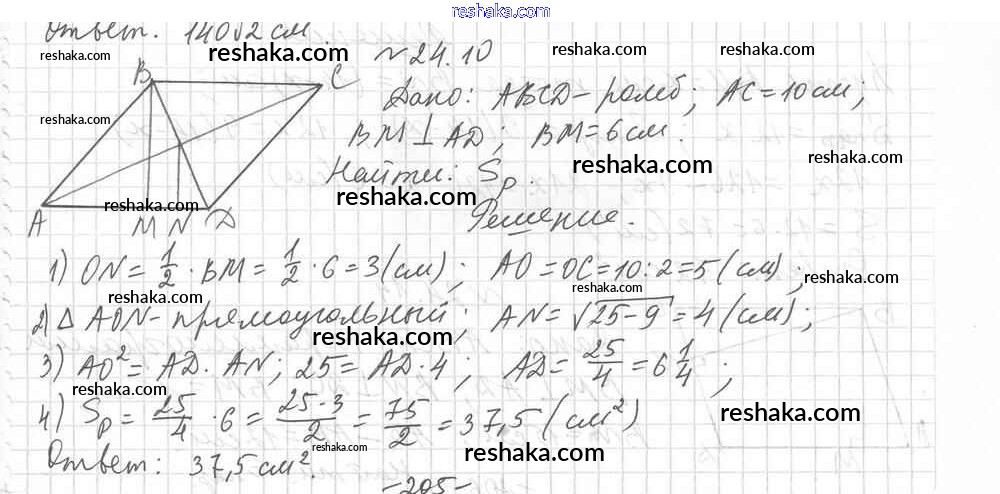 reshaka.com
Ответ. 140√2 см.
reshaka.com
№24.10
reshaka.com reshaka.com
reshaka.com
B C
Дано: ABCD - ромб; AC = 10 см;
reshaka.com
BM ⊥ AD; BM = 6 см.
reshaka.com reshaka.com
Найти: Sр.
reshaka.com
reshaka.com
A M N D
Решение.
1) ON = 1/2 · BM = 1/2 · 6 = 3 (см); AO = OC = 10 : 2 = 5 (см);
reshaka.com reshaka.com reshaka.com
2) Δ AON - прямоугольный; AN = √25-9 = 4 (см);
reshaka.com reshaka.com
3) AO² = AD · AN; 25 = AD · 4; AD = 25/4 = 6 1/4;
reshaka.com
4) Sр = 25/4 · 6 = 25·3/2 = 75/2 = 37,5 (см²)
reshaka.com
reshaka.com reshaka.com
Ответ: 37,5 см².
-205-